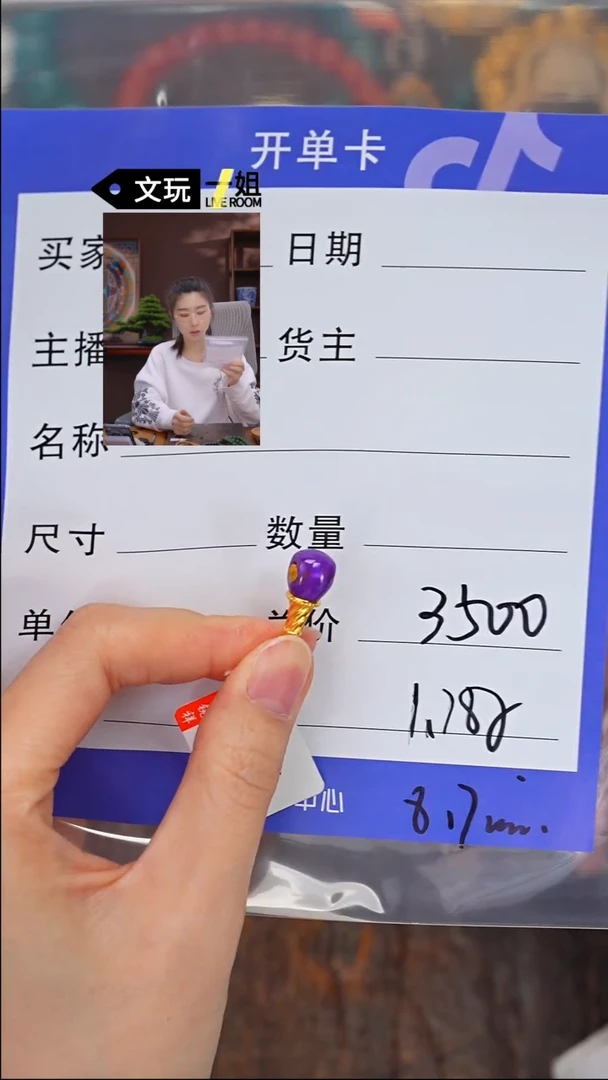 开单卡
文玩一姐
LIVE ROOM
买家 日期
主播 货主
名称
尺寸 数量
单 价 3500
1.78g
中心 8.7mm.